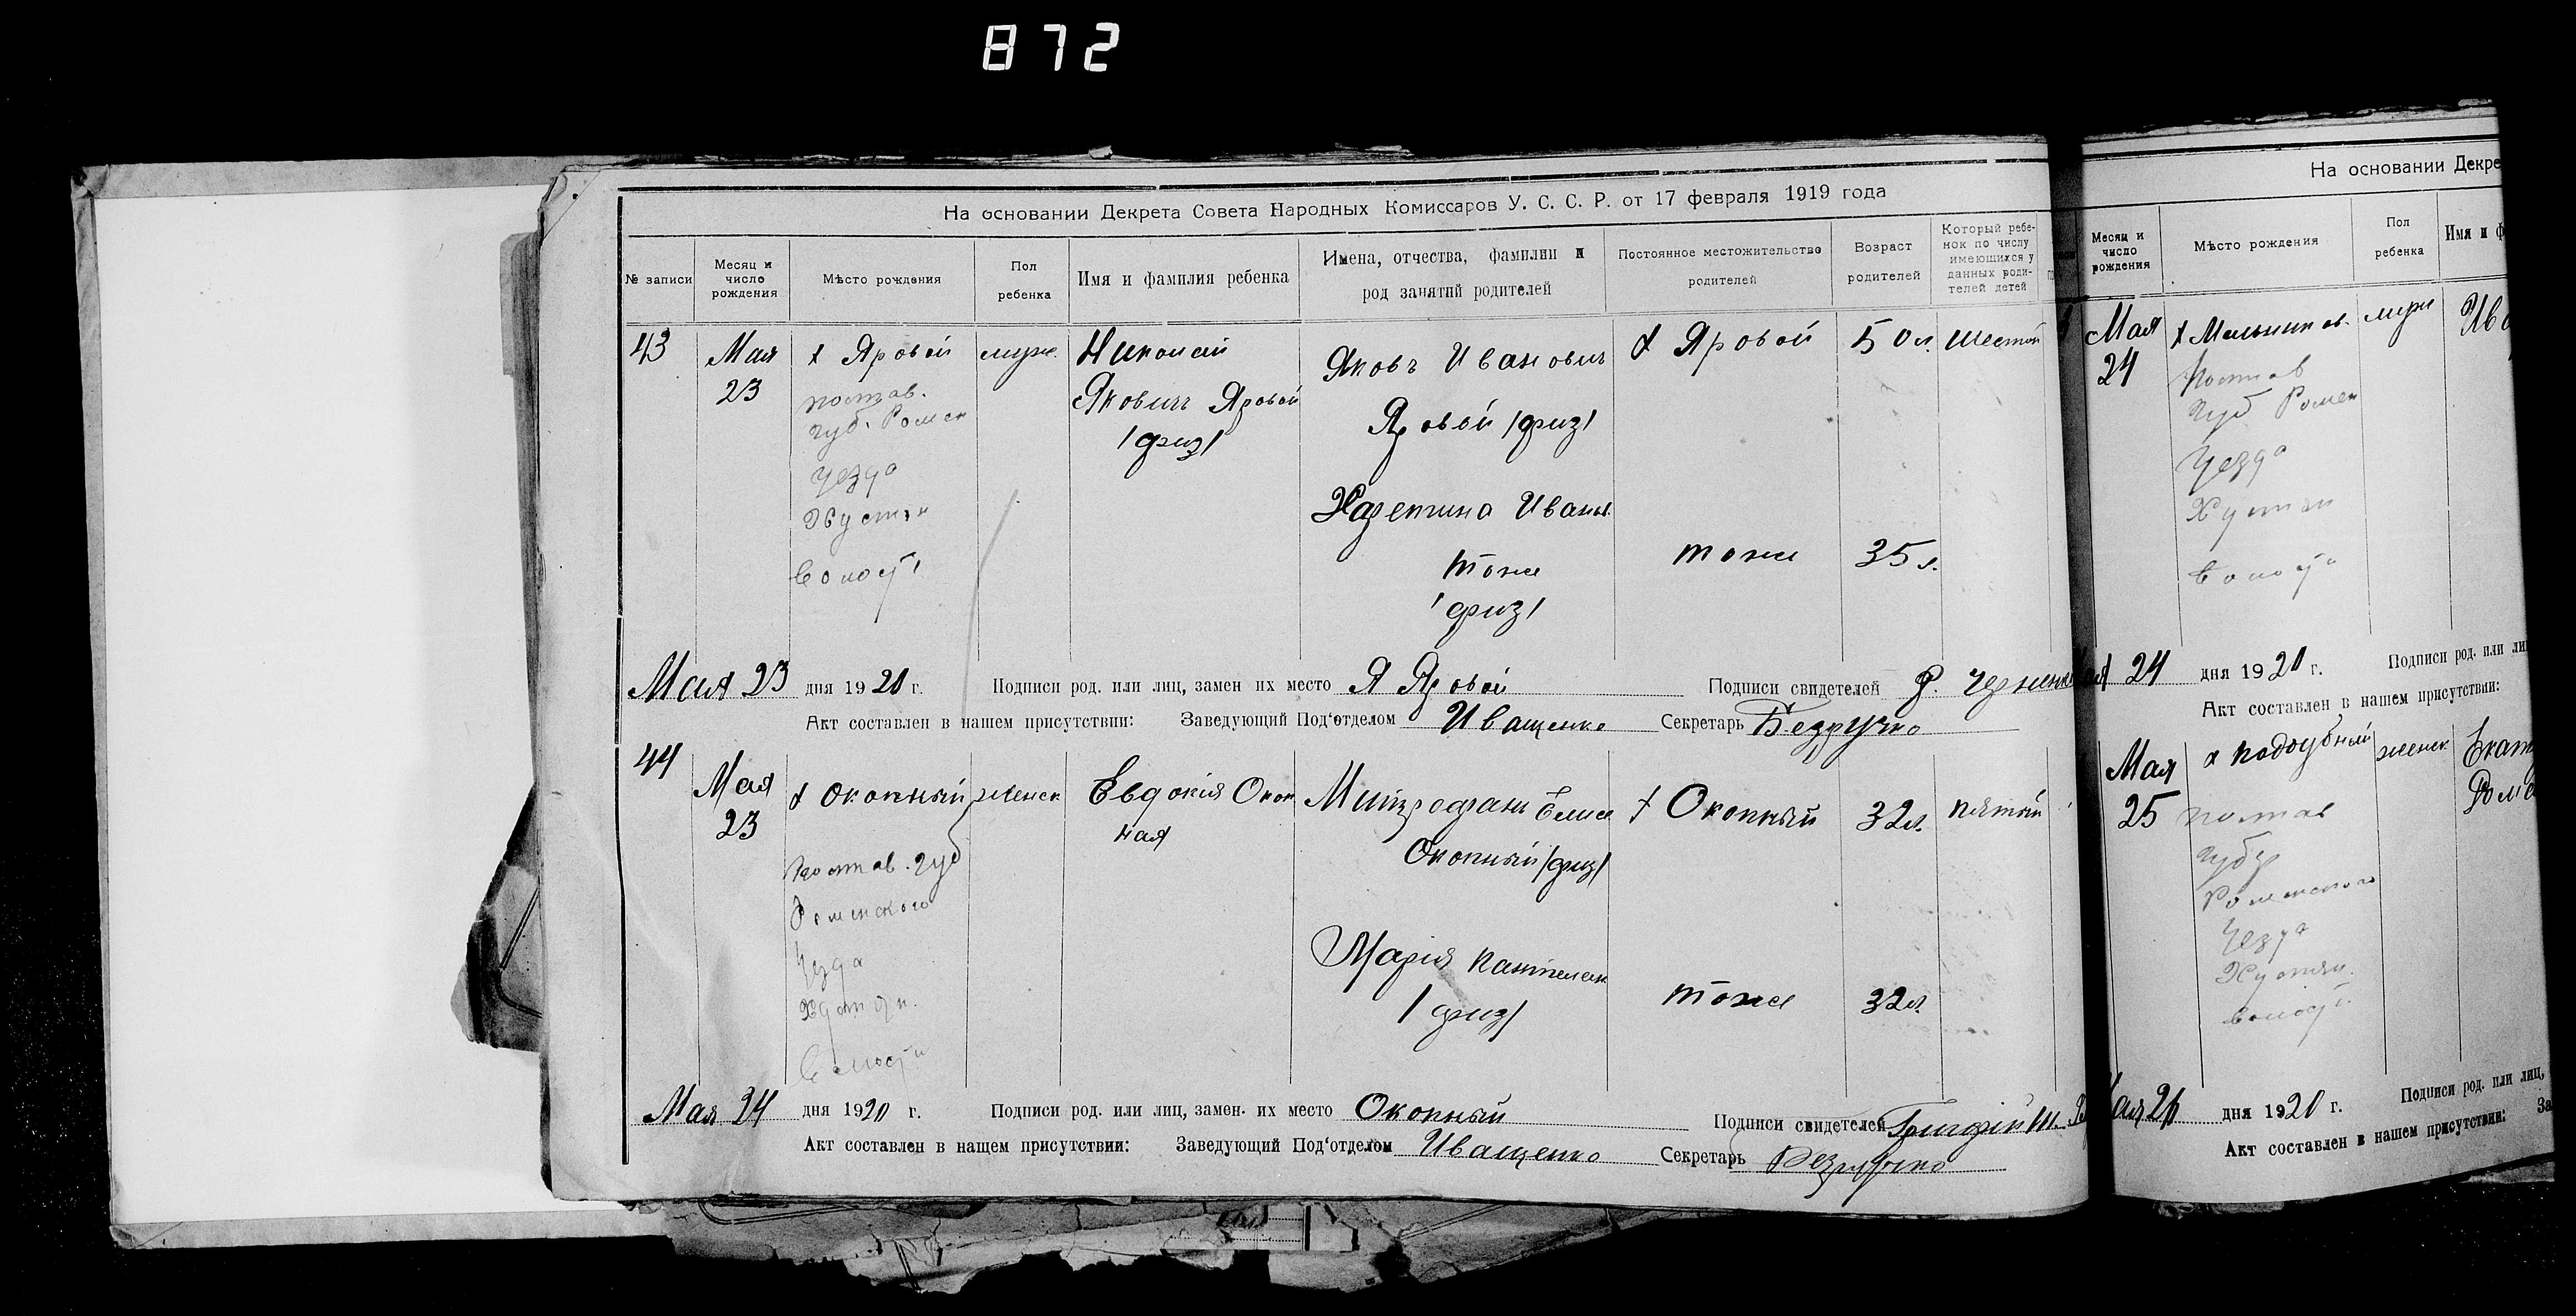 872
На основании Декрета Совета Народных Комиссаров У. С. С. Р. от 17 февраля 1919 года
№ записи
Месяц и
число
рождения
Мѣсто рождения
Пол
ребенка
Имя и фамилия ребенка
Имена, отчества, фамилии и
род занятий родителей
Постоянное местожительство
родителей
Возраст
родителей
Который ребе-
нок по числу
имеющихся у
данных роди-
телей детей
43
Мая
23
х Яровой
Полтав.
губ. Ромен
Уезда
Хустян
Волости
муж.
Николай
Яковичъ Яровой
/физ/
Яковъ Ивановичъ
Яровой /физ/
Харетина Иванов
тоже
/физ/
х Яровой
тоже
50 л.
35 л.
шестой
Мая 23 дня 1920 г. Подписи род. или лиц, замен их место Я Яровой Подписи свидетелей
Акт составлен в нашем присутствии: Заведующий Под‘отделом Иващенко Секретарь
44
Мая
23
х Окопный
Полтав. губ
Роменского
Уезда
Хустян.
Волости
женск
Евдокія Окоп
ная
Митрофанъ Елисе
Окопный /физ/
Марія Пантелеем
/физ/
х Окопный
тоже
32 л.
32 л.
пятый
Мая 24 дня 1920 г. Подписи род. или лиц, замен. их место Окопный Подписи свидетелей
Акт составлен в нащем присутствии: Заведующий Под‘отделом Иващенко Секретарь
На основании Декре
Месяц и
число
рождения
Мѣсто рождения
Пол
ребенка
Имя и ф
Мая
24
х Мельников.
Полтав
Губ Ромен
Уезда
Хустян
Волости
муж
Ива
24 дня 1920 г. Подписи род. или ли
Акт составлен в нашем присутствии:
Мая
25
х Поддубный
Полтав
Губер
Роменского
Уезда
Хустян.
волости
женск
Екат
Рома
дня 1920 г. Подписи род. или лиц,
Акт составлен в нашем присутствии: За